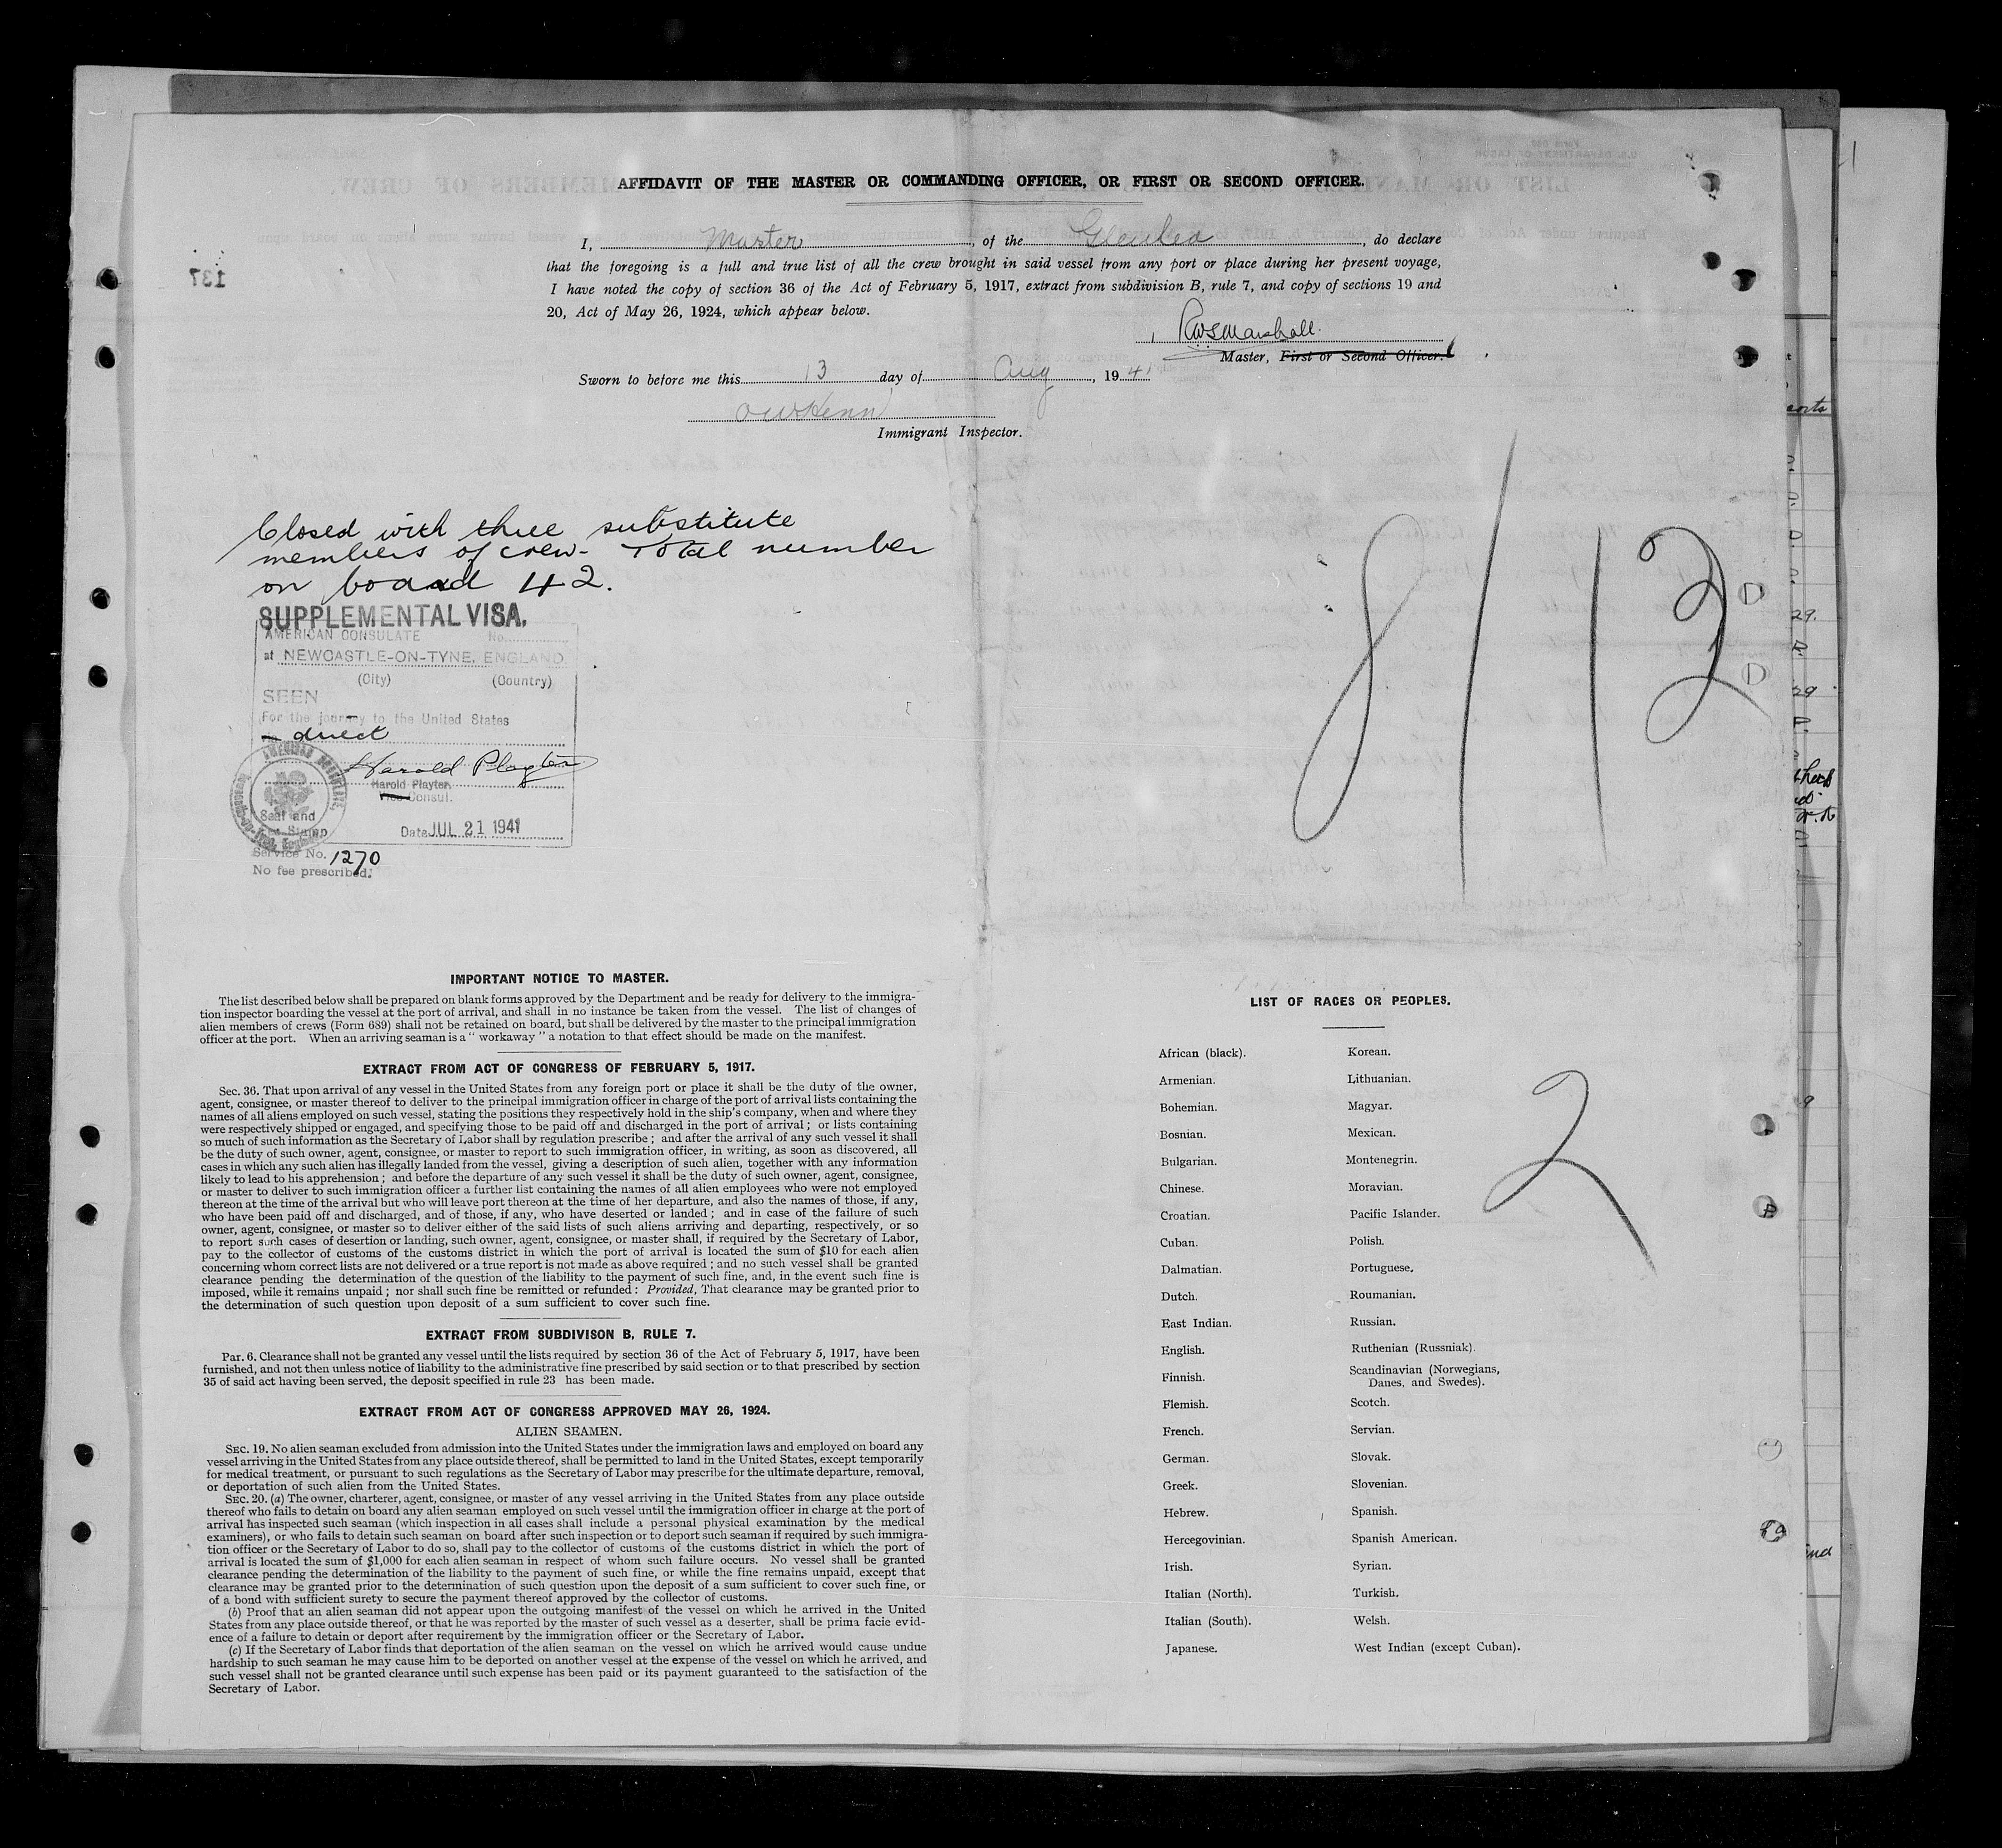 AFFIDAVIT OF THE MASTER OR COMMANDING OFFICER, OR FIRST OR SECOND OFFICER.
I, Master, of the Glenlea, do declare
that the foregoing is a full and true list of all the crew brought in said vessel from any port or place during her present voyage,
I have noted the copy of section 36 of the Act of February 5, 1917, extract from subdivision B, rule 7, and copy of sections 19 and
20, Act of May 26, 1924, which appear below.
RWSMarshall.
Master, First or Second Officer.
Sworn to before me this 13 day of Aug, 1941
Immigrant Inspector.
137
Closed with three substitute
members of crew- Total number
on board 42.
SUPPLEMENTAL VISA.
AMERICAN CONSULATE No.
at NEWCASTLE-ON-TYNE, ENGLAND
(City) (Country)
SEEN
For the journey to the United States
direct
Harold Playter
Harold Playter
Vice Consul.
Seal and
Fee Stamp
Date JUL 21 1941
Service No. 1270
No fee prescribed.
8/12
IMPORTANT NOTICE TO MASTER.
The list described below shall be prepared on blank forms approved by the Department and be ready for delivery to the immigra-
tion inspector boarding the vessel at the port of arrival, and shall in no instance be taken from the vessel. The list of changes of
alien members of crews (Form 689) shall not be retained on board, but shall be delivered by the master to the principal immigration
officer at the port. When an arriving seaman is a "workaway" a notation to that effect should be made on the manifest.
EXTRACT FROM ACT OF CONGRESS OF FEBRUARY 5, 1917.
Sec. 36. That upon arrival of any vessel in the United States from any foreign port or place it shall be the duty of the owner,
agent, consignee, or master thereof to deliver to the principal immigration officer in charge of the port of arrival lists containing the
names of all aliens employed on such vessel, stating the positions they respectively hold in the ship's company, when and where they
were respectively shipped or engaged, and specifying those to be paid off and discharged in the port of arrival; or lists containing
so much of such information as the Secretary of Labor shall by regulation prescribe; and after the arrival of any such vessel it shall
be the duty of such owner, agent, consignee, or master to report to such immigration officer, in writing, as soon as discovered, all
cases in which any such alien has illegally landed from the vessel, giving a description of such alien, together with any information
likely to lead to his apprehension; and before the departure of any such vessel it shall be the duty of such owner, agent, consignee,
or master to deliver to such immigration officer a further list containing the names of all alien employees who were not employed
thereon at the time of the arrival but who will leave port thereon at the time of her departure, and also the names of those, if any,
who have been paid off and discharged, and of those, if any, who have deserted or landed; and in case of the failure of such
owner, agent, consignee, or master so to deliver either of the said lists of such aliens arriving and departing, respectively, or so
to report such cases of desertion or landing, such owner, agent, consignee, or master shall, if required by the Secretary of Labor,
pay to the collector of customs of the customs district in which the port of arrival is located the sum of $10 for each alien
concerning whom correct lists are not delivered or a true report is not made as above required; and no such vessel shall be granted
clearance pending the determination of the question of the liability to the payment of such fine, and, in the event such fine is
imposed, while it remains unpaid; nor shall such fine be remitted or refunded: Provided, That clearance may be granted prior to
the determination of such question upon deposit of a sum sufficient to cover such fine.
EXTRACT FROM SUBDIVISON B, RULE 7.
Par. 6. Clearance shall not be granted any vessel until the lists required by section 36 of the Act of February 5, 1917, have been
furnished, and not then unless notice of liability to the administrative fine prescribed by said section or to that prescribed by section
35 of said act having been served, the deposit specified in rule 23 has been made.
EXTRACT FROM ACT OF CONGRESS APPROVED MAY 26, 1924.
ALIEN SEAMEN.
SEC. 19. No alien seaman excluded from admission into the United States under the immigration laws and employed on board any
vessel arriving in the United States from any place outside thereof, shall be permitted to land in the United States, except temporarily
for medical treatment, or pursuant to such regulations as the Secretary of Labor may prescribe for the ultimate departure, removal,
or deportation of such alien from the United States.
SEC. 20. (a) The owner, charterer, agent, consignee, or master of any vessel arriving in the United States from any place outside
thereof who fails to detain on board any alien seaman employed on such vessel until the immigration officer in charge at the port of
arrival has inspected such seaman (which inspection in all cases shall include a personal physical examination by the medical
examiners), or who fails to detain such seaman on board after such inspection or to deport such seaman if required by such immigra-
tion officer or the Secretary of Labor to do so, shall pay to the collector of customs of the customs district in which the port of
arrival is located the sum of $1,000 for each alien seaman in respect of whom such failure occurs. No vessel shall be granted
clearance pending the determination of the liability to the payment of such fine, or while the fine remains unpaid, except that
clearance may be granted prior to the determination of such question upon the deposit of a sum sufficient to cover such fine, or
of a bond with sufficient surety to secure the payment thereof approved by the collector of customs.
(b) Proof that an alien seaman did not appear upon the outgoing manifest of the vessel on which he arrived in the United
States from any place outside thereof, or that he was reported by the master of such vessel as a deserter, shall be prima facie evid-
ence of a failure to detain or deport after requirement by the immigration officer or the Secretary of Labor.
(c) If the Secretary of Labor finds that deportation of the alien seaman on the vessel on which he arrived would cause undue
hardship to such seaman he may cause him to be deported on another vessel at the expense of the vessel on which he arrived, and
such vessel shall not be granted clearance until such expense has been paid or its payment guaranteed to the satisfaction of the
Secretary of Labor.
LIST OF RACES OR PEOPLES.
African (black). Korean.
Armenian. Lithuanian.
Bohemian. Magyar.
Bosnian. Mexican.
Bulgarian. Montenegrin.
Chinese. Moravian.
Croatian. Pacific Islander.
Cuban. Polish.
Dalmatian. Portuguese.
Dutch. Roumanian.
East Indian. Russian.
English. Ruthenian (Russniak).
Finnish. Scandinavian (Norwegians,
Danes, and Swedes).
Flemish. Scotch.
French. Servian.
German. Slovak.
Greek. Slovenian.
Hebrew. Spanish.
Hercegovinian. Spanish American.
Irish. Syrian.
Italian (North). Turkish.
Italian (South). Welsh.
Japanese. West Indian (except Cuban).
2